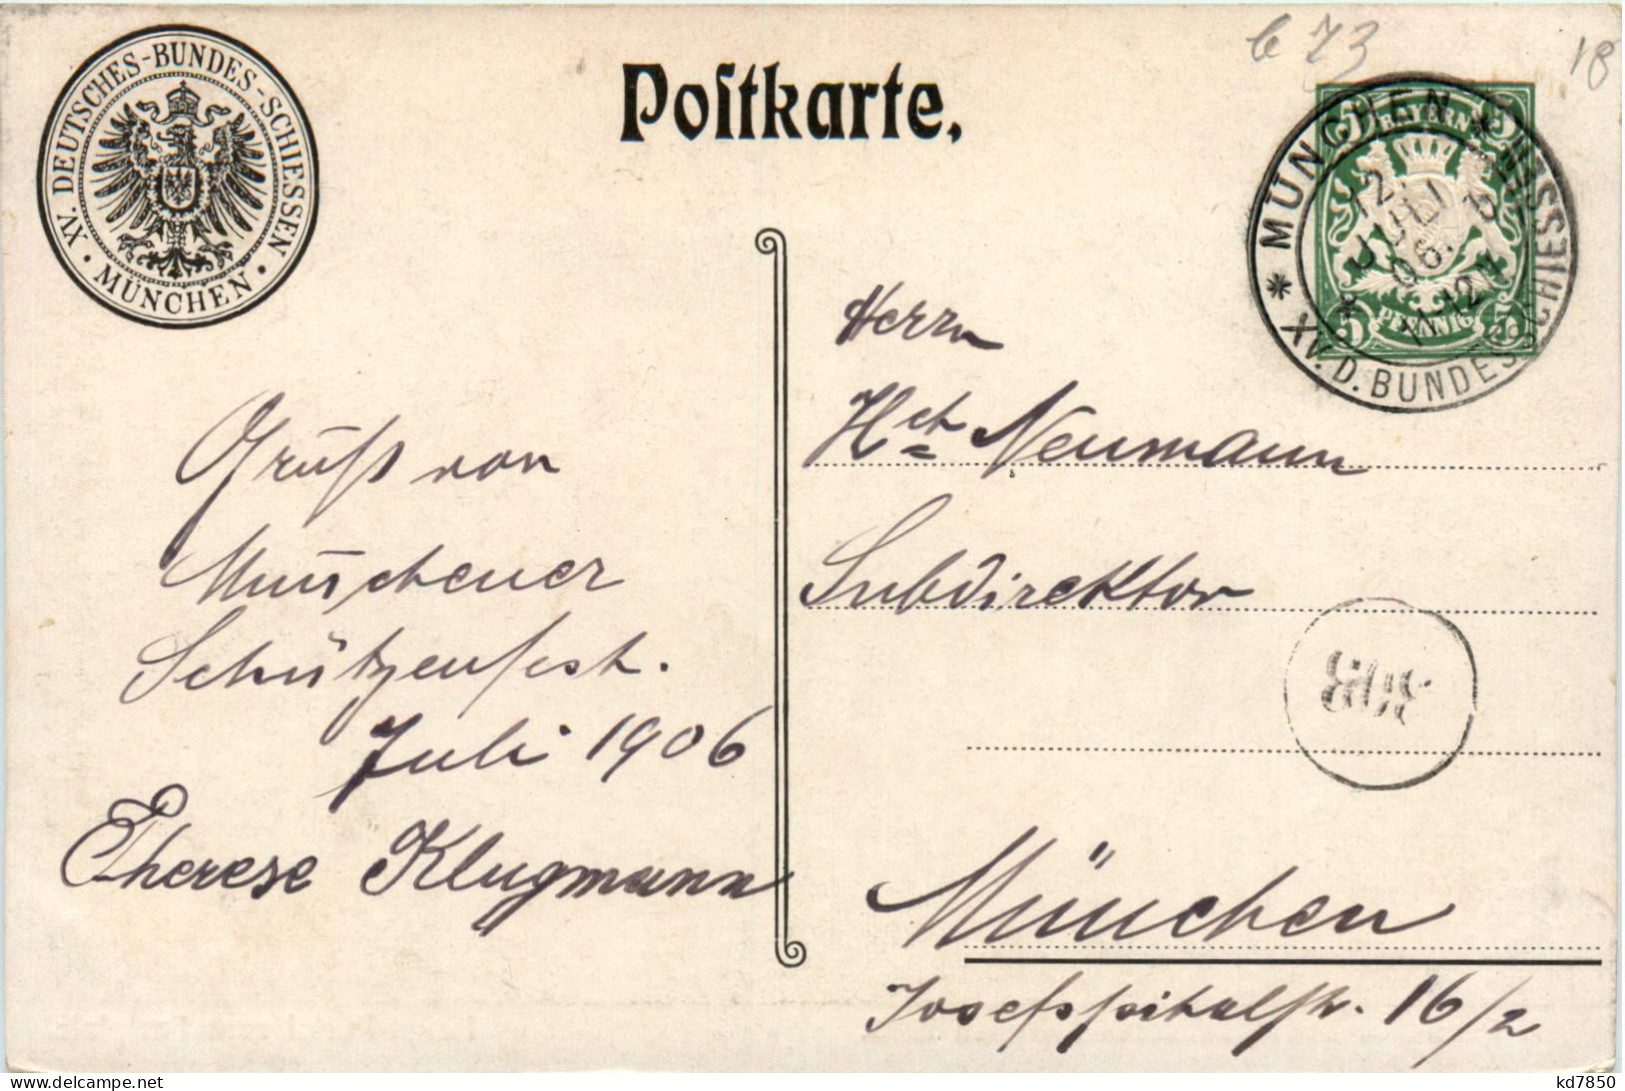 XV. DEUTSCHES-BUNDES-SCHIESSEN
· MÜNCHEN ·
Poſtkarte.
73
18
BAYERN
5 PFENNIG 5
* MÜNCHEN * FESTSCHIESSPL.
XV. D. BUNDESSCHIESSEN
12.
JULI
06.
Gruß von
Münchener
Schützenfest.
Juli 1906
Therese Klugmann
Herrn
Hct Neumann
Subdirektor
München
Josefspitalstr. 16/2
kd7850